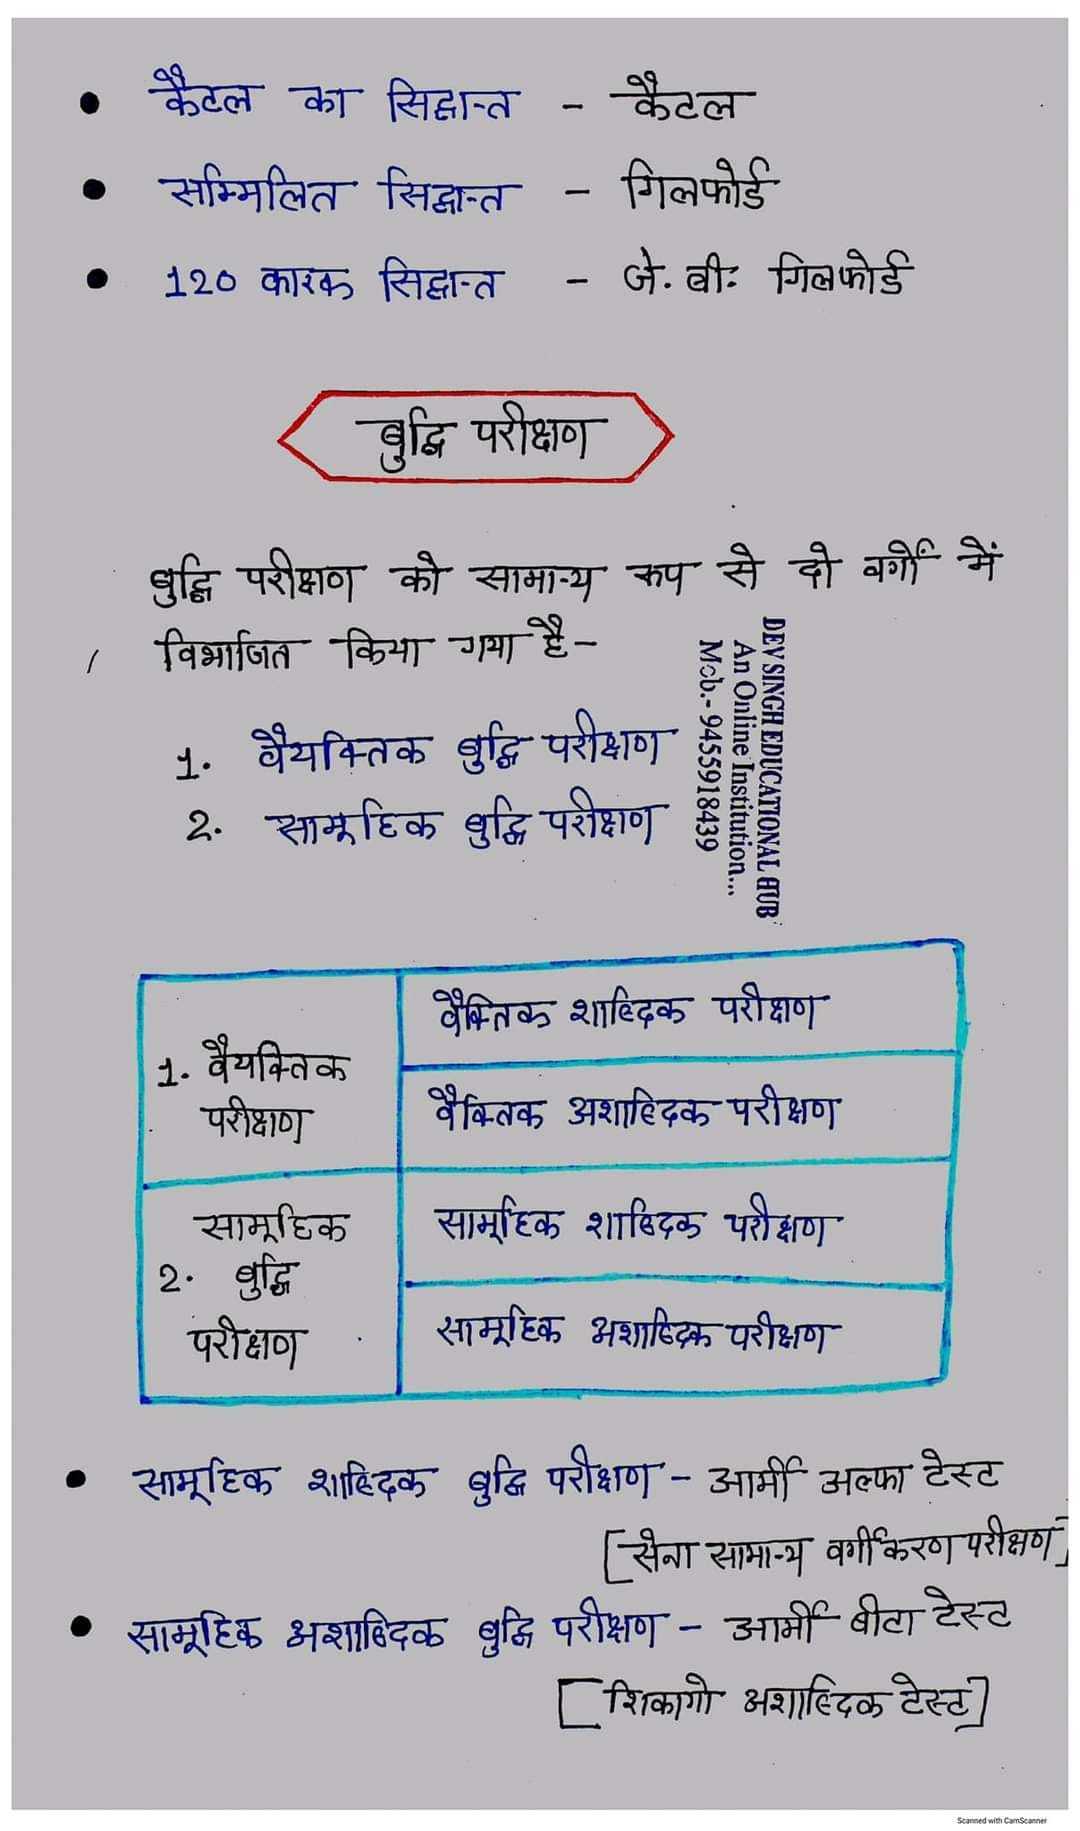 • कैटल का सिद्धान्त - कैटल
• सम्मिलित सिद्धान्त - गिलफोर्ड
• 120 कारक सिद्धान्त - जे. बी. गिलफोर्ड
बुद्धि परीक्षण
बुद्धि परीक्षण को सामान्य रूप से दो वर्गों में
विभाजित किया गया है -
1. वैयक्तिक बुद्धि परीक्षण
2. सामूहिक बुद्धि परीक्षण
DEV SINGH EDUCATIONAL HUB
An Online Institution...
Mob.- 9455918439
1. वैयक्तिक
परीक्षण
वैक्तिक शाब्दिक परीक्षण
वैक्तिक अशाब्दिक परीक्षण
सामूहिक
2. बुद्धि
परीक्षण
सामूहिक शाब्दिक परीक्षण
सामूहिक अशाब्दिक परीक्षण
• सामूहिक शाब्दिक बुद्धि परीक्षण - आर्मी अल्फा टेस्ट
[सेना सामान्य वर्गीकरण परीक्षण]
• सामूहिक अशाब्दिक बुद्धि परीक्षण - आर्मी बीटा टेस्ट
[शिकागो अशाब्दिक टेस्ट]
Scanned with CamScanner